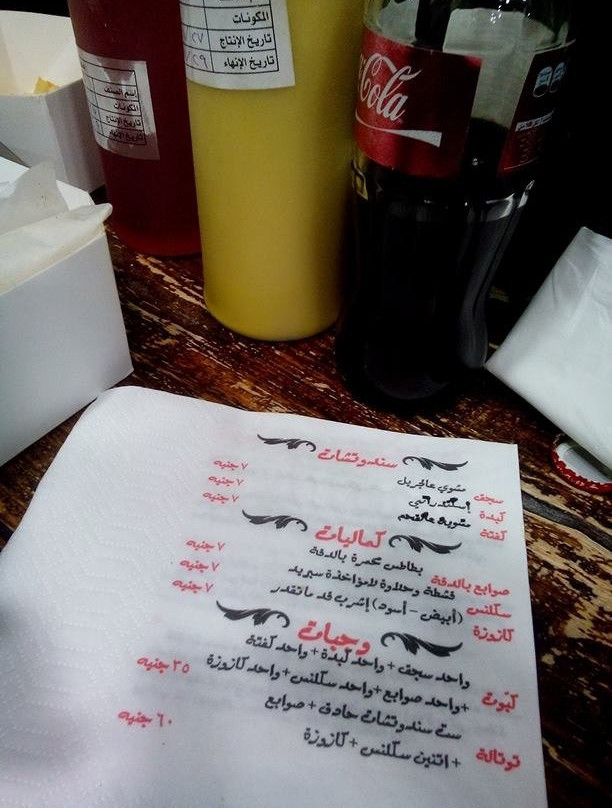 إسم الصنف
المكونات
تاريخ الإنتاج
تاريخ الإنهاء
المكونات
تاريخ الإنتاج
تاريخ الإنهاء
Coca-Cola
سندوتشات
سجق مشوي عالجريل ٧ جنيه
كبدة إسكندراني ٧ جنيه
كفتة مشوية عالفحم ٧ جنيه
كماليات
صوابع بالدقة بطاطس محمرة بالدقة ٧ جنيه
سكلانس قشطة وحلاوة لامؤاخذة سبريد ٧ جنيه
كازوزة (أبيض - أسود) إشرب قد ماتقدر ٧ جنيه
وجبات
كبوت واحد سجق + واحد كبدة + واحد كفتة
+ واحد صوابع + واحد سكلانس + واحد كازوزة ٣٥ جنيه
توتالة ست سندوتشات حادق + صوابع
+ اتنين سكلانس + كازوزة ٦٠ جنيه